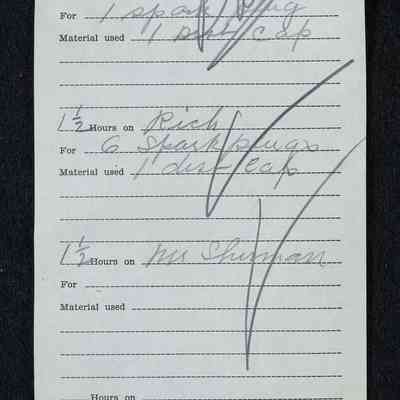 For 1 spark plug
Material used 1 dist cap
1½ Hours on Rich
For 6 Spark plugs
Material used 1 dist cap
1½ Hours on Mr Shuman
For
Material used
Hours on